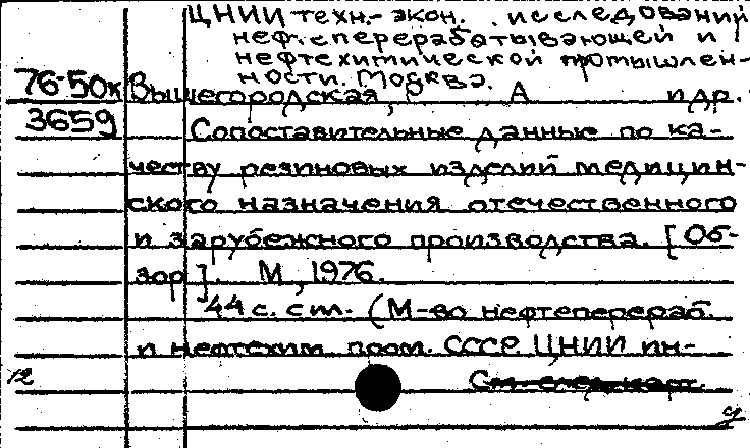 ЦНИИ техн.-экон. исследований
нефтеперерабатывающей и
нефтехимической промышлен-
ности. Москва.
76-50к Вышегородская, А и др.
3659 Сопоставительные данные по ка-
честву резиновых изделий медицин-
ского назначения отечественного
и зарубежного производства. [Об-
зор]. М, 1976.
44 с. с ил. (М-во нефтеперераб.
и нефтехим пром. СССР. ЦНИИ ин-
12 См. след. карт.